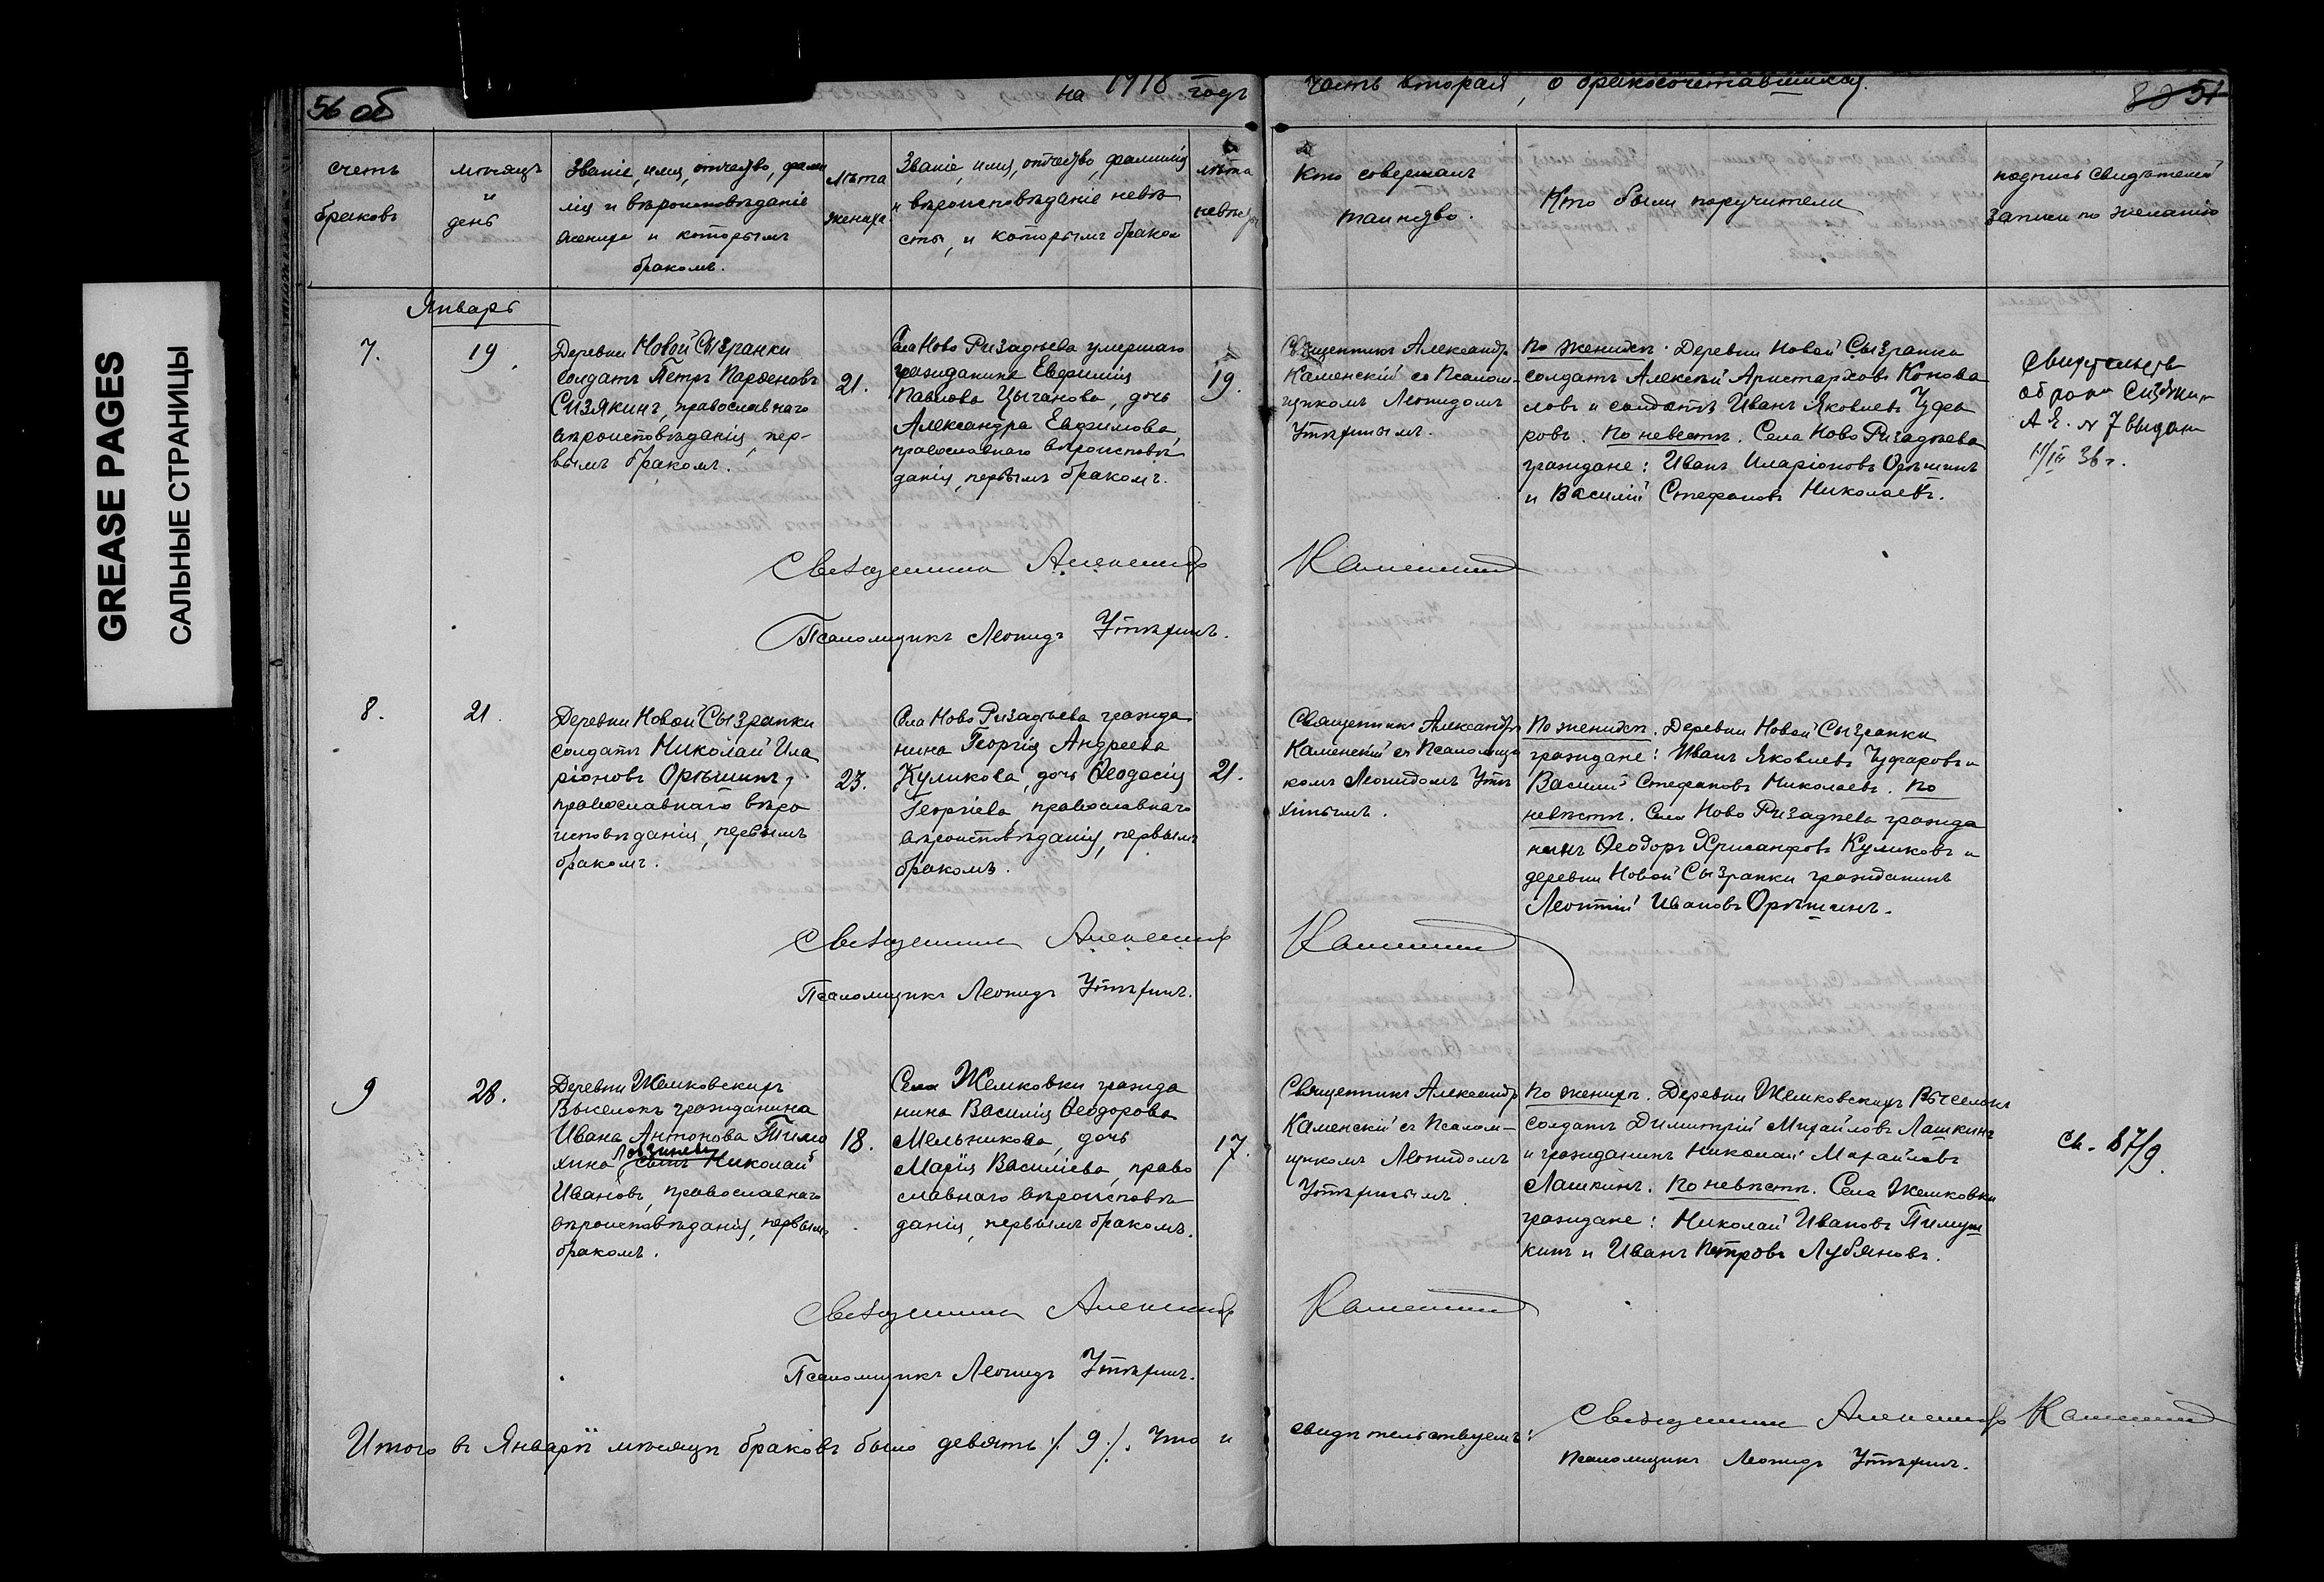 GREASE PAGES
САЛЬНЫЕ СТРАНИЦЫ
56 об
на 1918 годъ
Часть вторая, о бракосочетавшихся.
51
счетъ
браковъ
мѣсяцъ
и
день
Званіе, имя, отчество, фами
лія и вѣроисповѣданіе
жениха и которымъ
бракомъ.
Лѣта
жениха
Званіе, имя, отчество, фамилія
и вѣроисповѣданіе невѣ
сты, и которымъ бракомъ
лѣта
невѣсты
Кто совершалъ
таинство.
Кто были поручители
подпись свидѣтелей
записи по желанію
Январь
7.
19.
Деревни Новой Сызранки
солдатъ Петръ Парѳеновъ
Сизякинъ, православнаго
вѣроисповѣданія, пер-
вымъ бракомъ.
21.
Села Ново Ризадѣева умершаго
гражданина Евфимія
Павлова Цыганова, дочь
Александра Евфимова,
православнаго вѣроисповѣ
данія, первымъ бракомъ.
19.
Священникъ Александръ
Каменскій съ Псалом-
щикомъ Леонидомъ
Утѣхинымъ.
По женихѣ. Деревни Новой Сызранки
солдатъ Алексѣй Аристарховъ Конова
ловъ и солдатъ Иванъ Яковлевъ Чуфа
ровъ. По невѣстѣ. Села Ново Ризадѣева
граждане: Иванъ Иларіоновъ Орѣшинъ
и Василій Стефановъ Николаевъ.
А. Я. № 7 выдан
11/III 36 г.
Священникъ Александръ Каменскій
Псаломщикъ Леонидъ Утѣхинъ.
8.
21.
Деревни Новой Сызранки
солдатъ Николай Ила
ріоновъ Орѣшинъ,
православнаго вѣро
исповѣданія, первымъ
бракомъ.
23.
Села Ново Ризадѣева гражда
нина Георгія Андреева
Куликова, дочь Ѳеодосія
Георгіева, православнаго
вѣроисповѣданія, первымъ
бракомъ.
21.
Священникъ Александръ
Каменскій съ Псаломщи
комъ Леонидомъ Утѣ
хинымъ.
По женихѣ. Деревни Новой Сызранки
граждане: Иванъ Яковлевъ Чуфаровъ и
Василій Стефановъ Николаевъ. По
невѣстѣ. Села Ново Ризадѣева гражда
нинъ Ѳеодоръ Хрисанфовъ Куликовъ и
деревни Новой Сызранки гражданинъ
Леонтій Ивановъ Орѣшинъ.
Священникъ Александръ Каменскій
Псаломщикъ Леонидъ Утѣхинъ.
9
28.
Деревни Жемковскихъ
Выселокъ гражданина
Ивана Антонова Тимо
хина, сынъ Николай
Ивановъ, православнаго
вѣроисповѣданія, первымъ
бракомъ.
18.
Села Жемковки гражда
нина Василія Ѳеодорова
Мельникова, дочь
Марія Василіева, право
славнаго вѣроисповѣ
данія, первымъ бракомъ.
17.
Священникъ Александръ
Каменскій съ Псалом-
щикомъ Леонидомъ
Утѣхинымъ.
По женихѣ. Деревни Жемковскихъ Выселокъ
солдатъ Димитрій Михайловъ Лашкинъ
и гражданинъ Николай Михайловъ
Лашкинъ. По невѣстѣ. Села Жемковки
граждане: Николай Ивановъ Пимуш
кинъ и Иванъ Петровъ Лубяновъ.
Св. 87/9.
Священникъ Александръ Каменскій
Псаломщикъ Леонидъ Утѣхинъ.
Итого въ Январѣ мѣсяцѣ браковъ было девять ./. 9 ./. Что и свидѣтельствуемъ:
Священникъ Александръ Каменскій
Псаломщикъ Леонидъ Утѣхинъ.